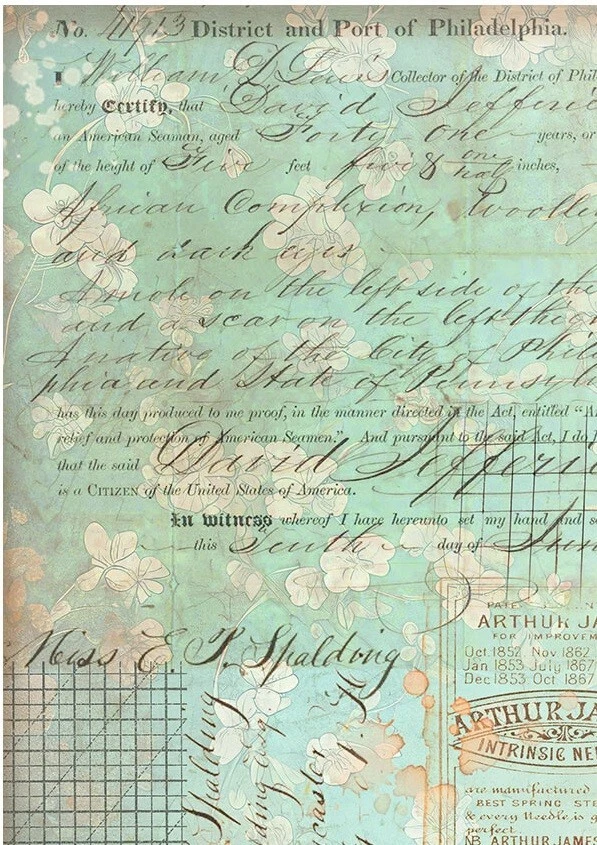 No. 41913 District and Port of Philadelphia.
I William D Lewis Collector of the District of Phil
hereby Certify, that David Jefferie
an American Seaman, aged Forty one years, or
of the height of Five feet five & one half inches,
African Complexion, woolley
and dark eyes
A mole on the left side of the
and a scar on the left thi
A native of the City of Phila
phia and State of Pennsyl
has this day produced to me proof, in the manner directed in the Act, entitled "A
relief and protection of American Seamen." And pursuant to the said Act, I do
that the said David Jefferie
is a CITIZEN of the United States of America.
In witness whereof I have hereunto set my hand and se
this Tenth day of
Miss E. P. Spalding
Spalding
PATE
ARTHUR JA
FOR IMPROVEM
Oct. 1852 Nov 1862
Jan 1853 July 1867
Dec 1853 Oct 1867
ARTHUR JA
INTRINSIC NE
are manufactured
BEST SPRING STE
& every Needle is g
perfect.
NB ARTHUR JAMES